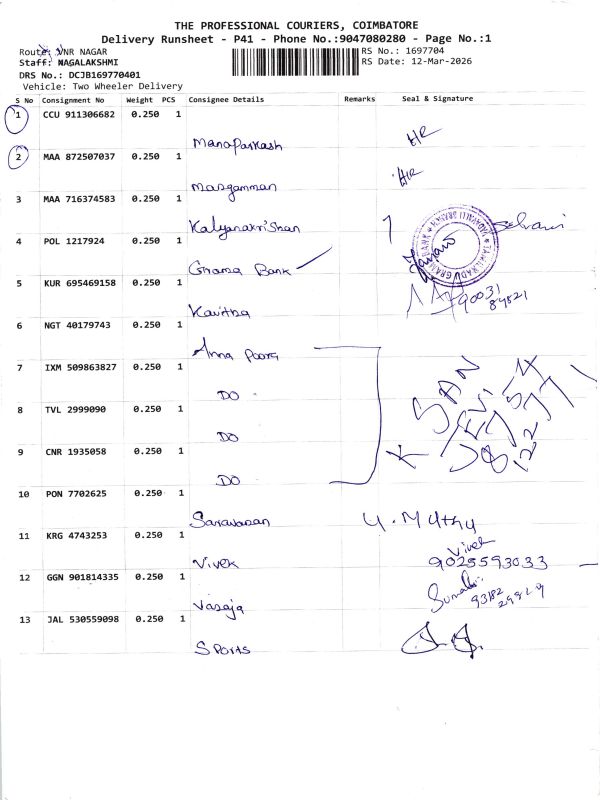 THE PROFESSIONAL COURIERS, COIMBATORE
Delivery Runsheet - P41 - Phone No.:9047080280 - Page No.:1
Route: VNR NAGAR
RS No.: 1697704
Staff: NAGALAKSHMI
RS Date: 12-Mar-2026
DRS No.: DCJB169770401
Vehicle: Two Wheeler Delivery
S No Consignment No Weight PCS Consignee Details Remarks Seal & Signature
1 CCU 911306682 0.250 1
Manoparkash
2 MAA 872507037 0.250 1
Masgamman
3 MAA 716374583 0.250 1
Kalyanakrishan
4 POL 1217924 0.250 1
Grama Bank
5 KUR 695469158 0.250 1
Kavitha 90031
6 NGT 40179743 0.250 1
Anna Poorg
7 IXM 509863827 0.250 1
DO
8 TVL 2999090 0.250 1
DO
9 CNR 1935058 0.250 1
DO
10 PON 7702625 0.250 1
Saravanan U. Muthu
11 KRG 4743253 0.250 1
Vivek
Vivek 9025593033
12 GGN 901814335 0.250 1
Vasaja
13 JAL 530559098 0.250 1
Sports